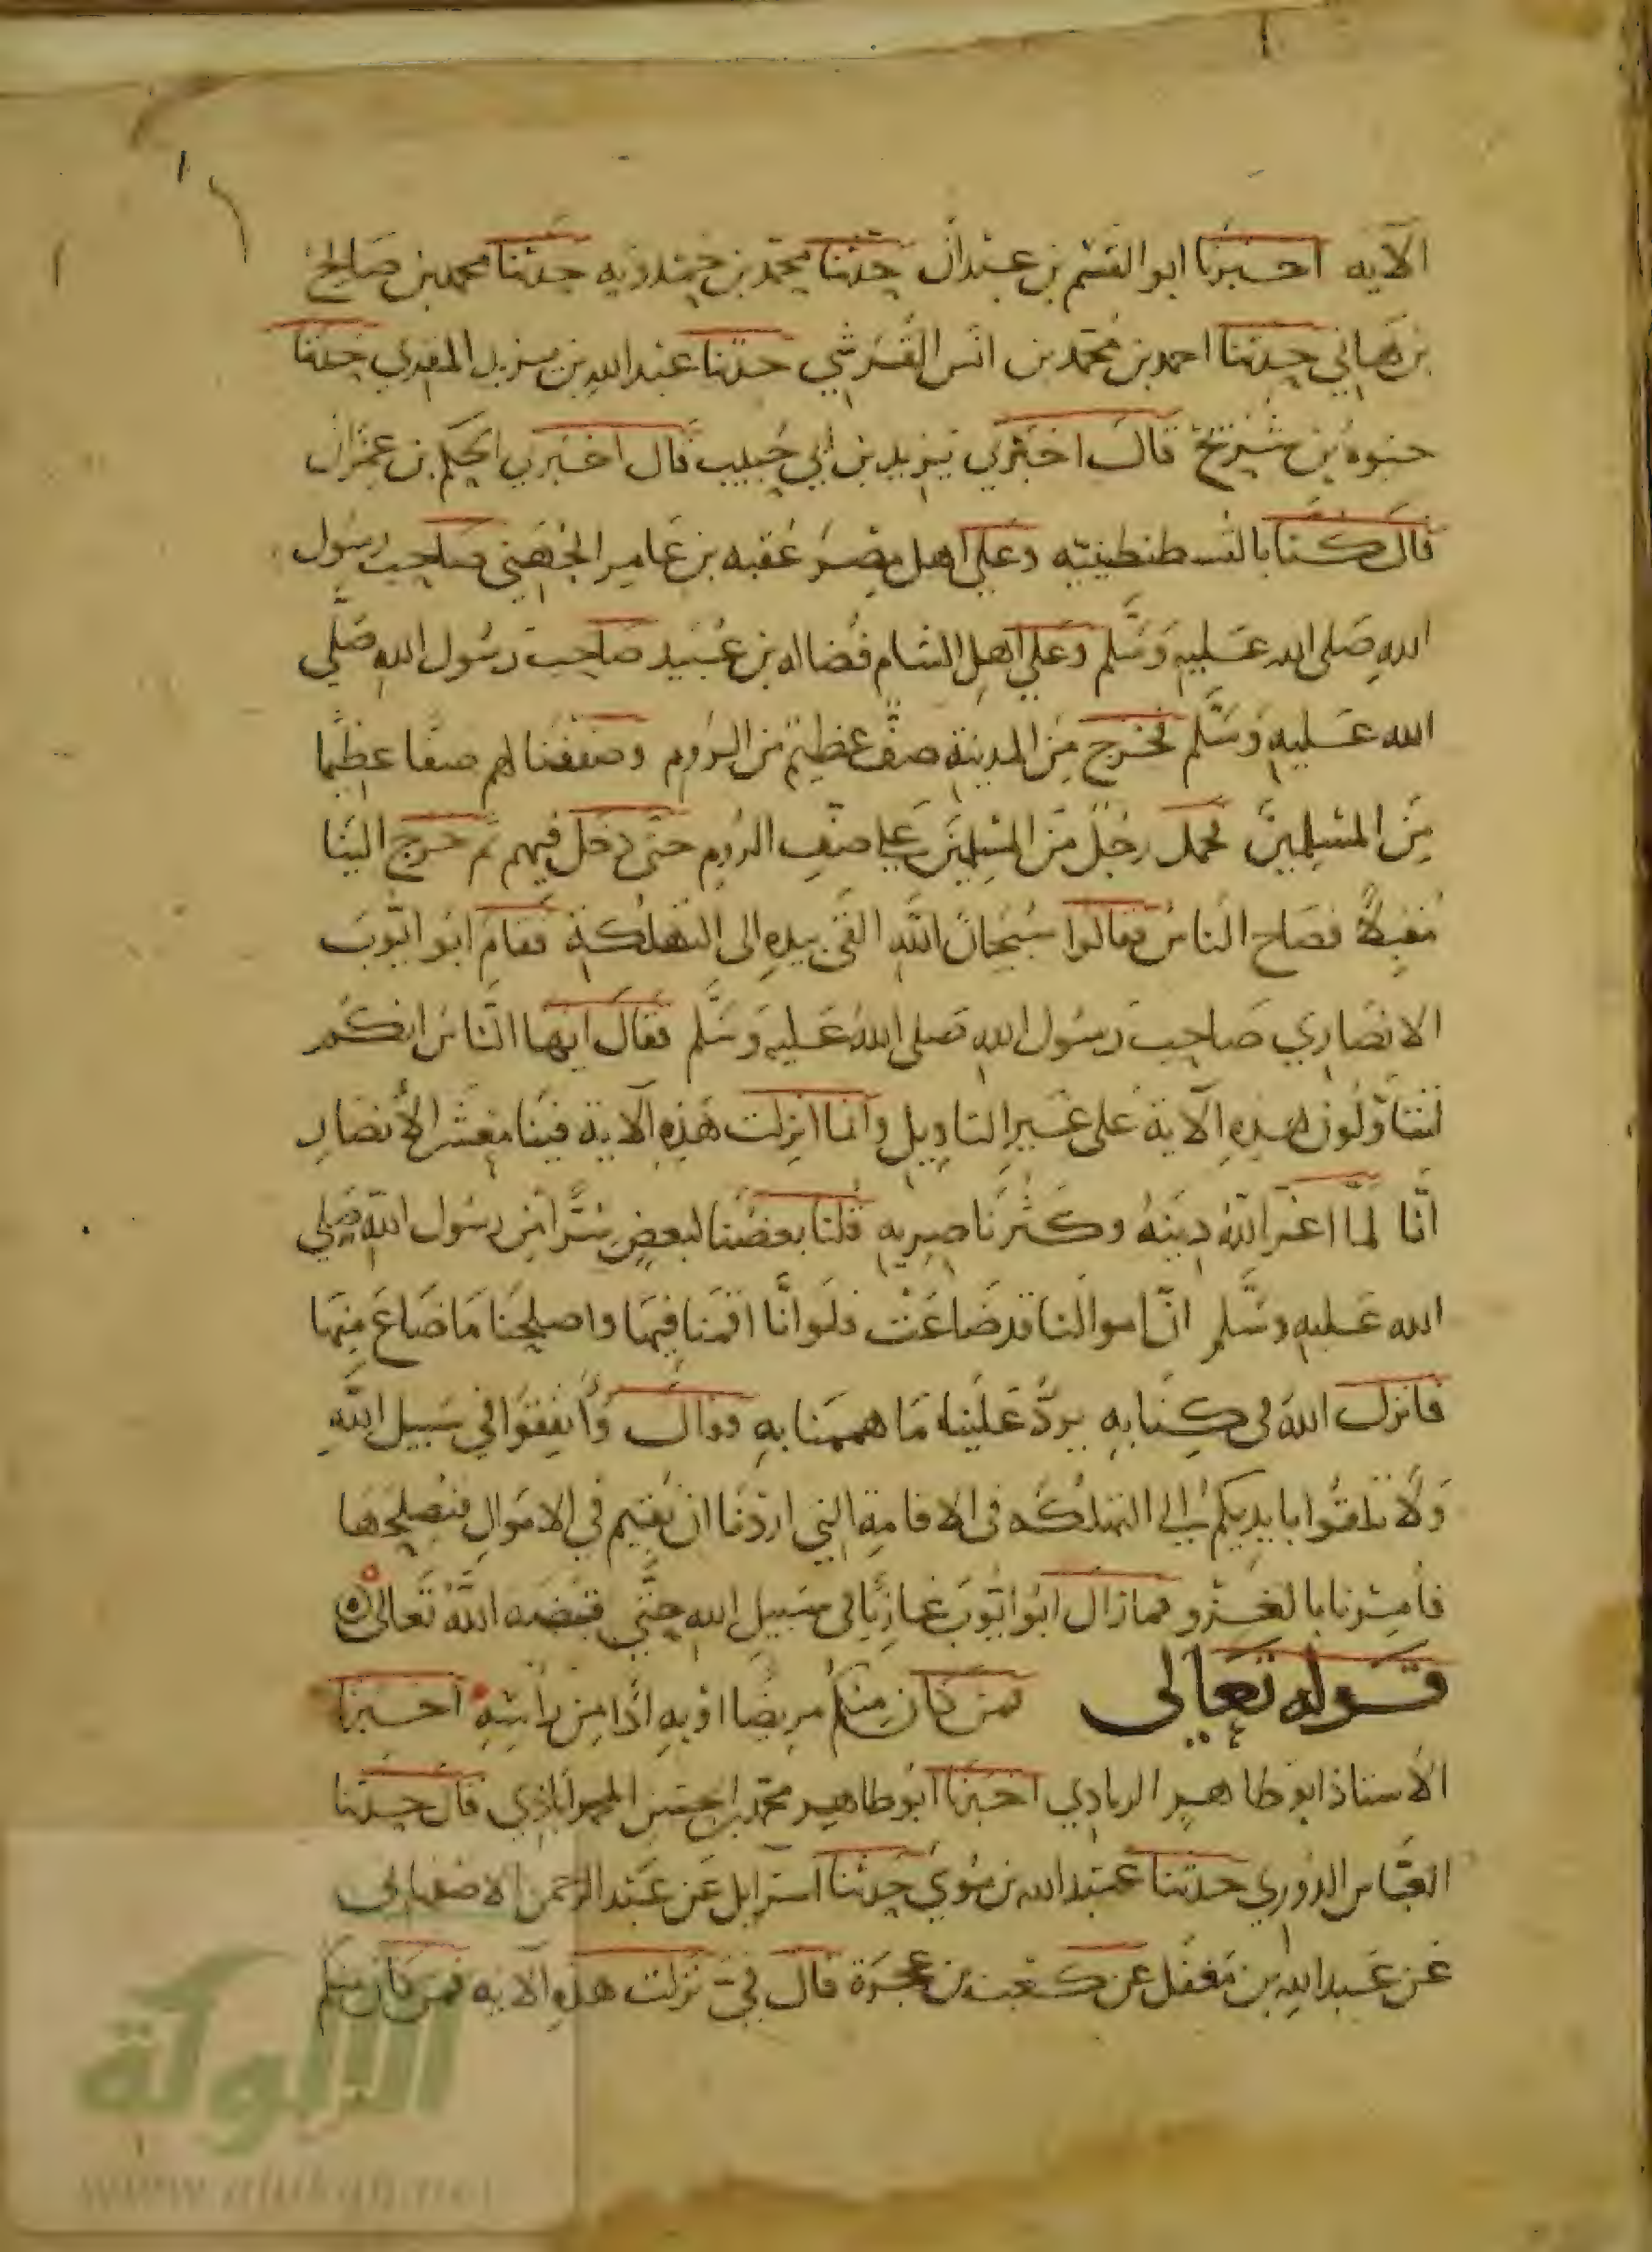 الآيه اخبرنا ابو القسم بن عبدان حدثنا محمد بن حمدويه حدثنا محمد بن صالح
بن هاني حدثنا احمد بن محمد بن انس القرشي حدثنا عبد الله بن يزيد المقري حدثنا
حيوة بن شريح قال اخبرني يزيد بن ابي حبيب قال اخبرني الحكم بن عمران
قال كنا بالقسطنطينيّه وعلى اهل مصر عقبه بن عامر الجهني صاحب رسول
الله صلى الله عليه وسلم وعلى اهل الشام فضاله بن عبيد صاحب رسول الله صلي
الله عليه وسلم فخرج من المدينة صفّ عظيم من الروم وصففنا لهم صفا عظيما
من المسلمين فحمل رجل من المسلمين على صف الروم حتى دخل فيهم ثم خرج الينا
مقبلاً فصاح الناس فقالوا سبحان الله القى بيده الى التهلكة فقام ابو ايّوب
الانصاري صاحب رسول الله صلى الله عليه وسلم فقال ايها الناس انكم
لتتأوّلون هذه الآية على غير التاويل وانما انزلت هذه الآية فينا معشر الأنصار
انّا لمّا اعز الله دينه وكثر ناصريه قلنا بعضنا لبعض سرّا من رسول الله صلي
الله عليه وسلم انّ اموالنا قد ضاعت فلو انّا اقمنا فيها واصلحنا ما ضاع منها
فانزل الله في كتابه يردّ علينا ما هممنا به فقال وأنفقوا في سبيل الله
ولا تلقوا بايديكم إلى التهلكه في الاقامة التي اردنا ان نقيم في الاموال فنصلحها
فأمرنا بالغزو فما زال ابو ايّوب غازيا في سبيل الله حتّى قبضه الله تعالى ه
قوله تعالى فمن كان منكم مريضا او به اذا من رأسه اخبرنا
الاستاذ ابو طاهر الزيادي اخبرنا ابو طاهر محمد بن الحسن المحمدآباذي قال حدثنا
العبّاس الدوري حدثنا عبيد الله بن موسى حدثنا اسرايل عن عبد الرحمن الاصفهاني
عن عبد الله بن مغفل عن كعب بن عجرة قال فيّ نزلت هذه الآيه فمن كان منكم
الألوكة
www.alukah.net